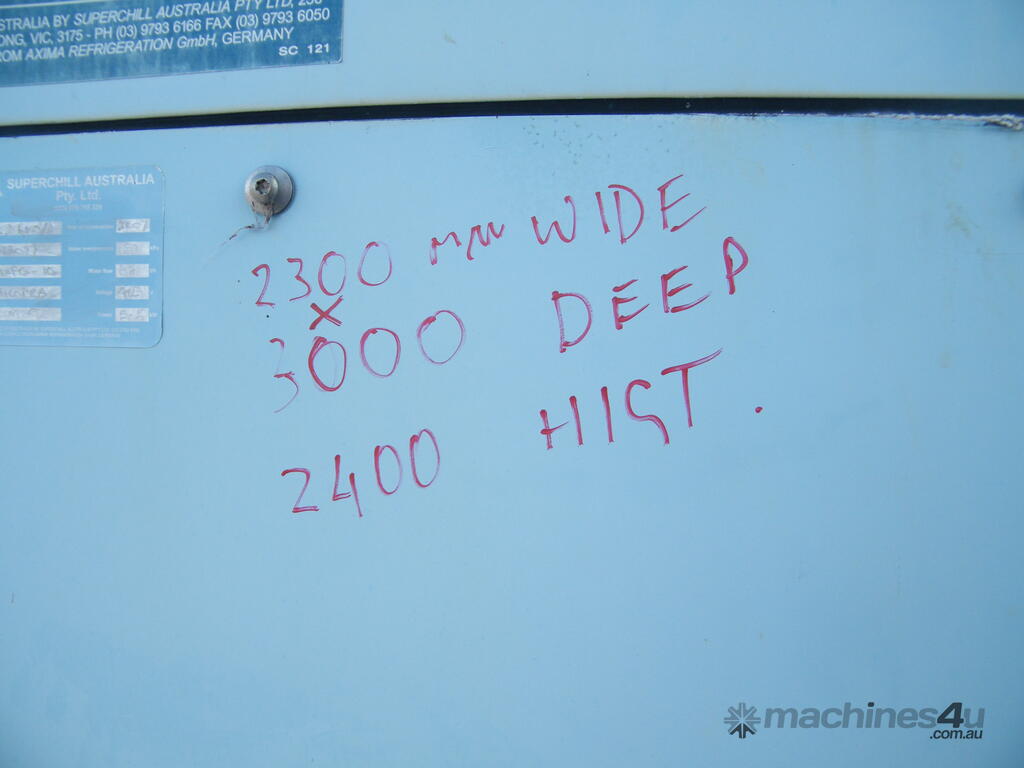 STRALIA BY SUPERCHILL AUSTRALIA PTY LTD, 
ONG, VIC, 3175 - PH (03) 9793 6166 FAX (03) 9793 6050
OM AXIMA REFRIGERATION GmbH, GERMANY
SC 121
SUPERCHILL AUSTRALIA
Pty. Ltd.
2300 mm WIDE
X
3000 DEEP
2400 HIGT.
machines4u
.com.au